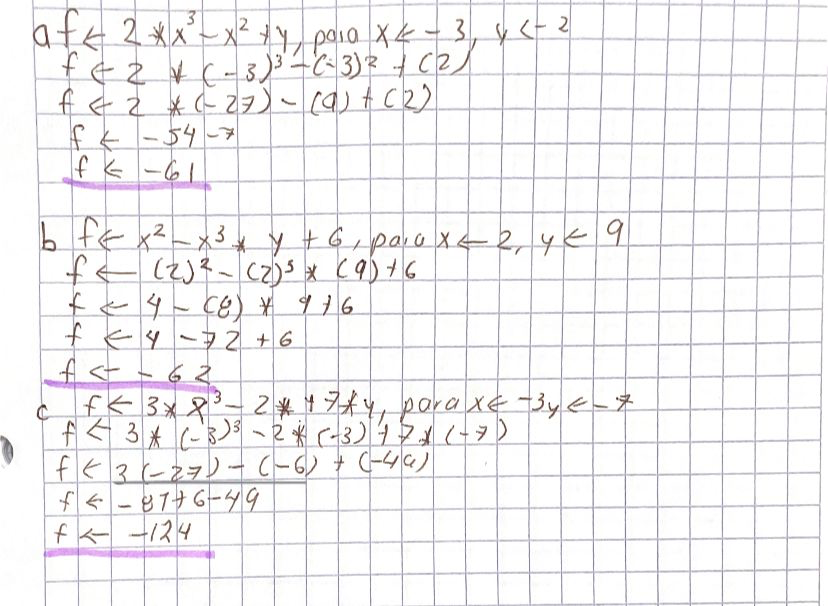 a f ← 2 * x³ - x² + y, para x ← - 3, y <- 2
f ← 2 * (-3)³ - (-3)² + (2)
f ← 2 * (-27) - (9) + (2)
f ← -54 -7
f ← -61
b f ← x² - x³ * y + 6, para x ← 2, y ← 9
f ← (2)² - (2)³ * (9) + 6
f ← 4 - (8) * 9 + 6
f ← 4 - 72 + 6
f ← - 62
c f ← 3 * x³ - 2 * + 7 * y, para x ← -3 y ← -7
f ← 3 * (-3)³ - 2 * (-3) + 7 * (-7)
f ← 3 (-27) - (-6) + (-49)
f ← -81+6-49
f ← -124